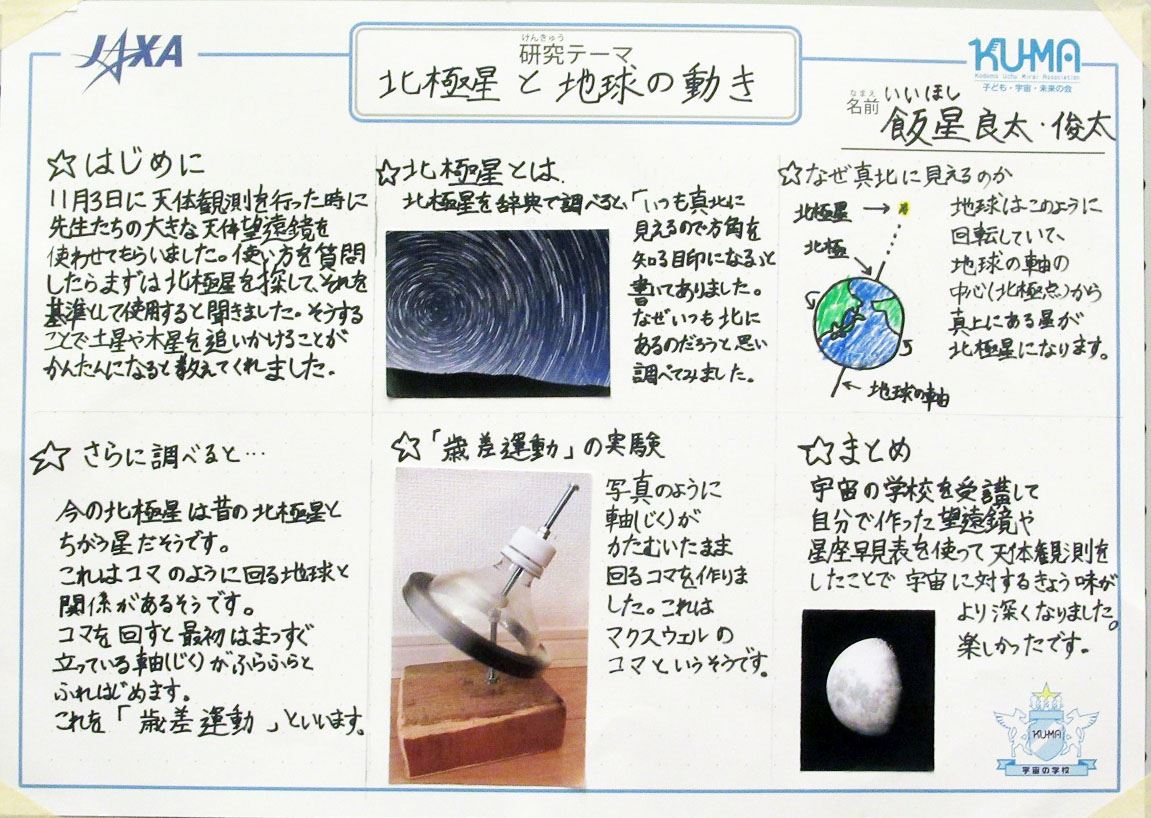 JAXA
けんきゅう
研究テーマ
北極星と地球の動き
KU-MA
Kodomo Uchu Mirai Association
子ども・宇宙・未来の会
なまえ いいほし
名前 飯星良太・俊太
☆はじめに
11月3日に天体観測を行った時に
先生たちの大きな天体望遠鏡を
使わせてもらいました。使い方を質問
したらまずは北極星を探して、それを
基準として使用すると聞きました。そうする
ことで土星や木星を追いかけることが
かんたんになると教えてくれました。
☆北極星とは、
北極星を辞典で調べると、「いつも真北に
見えるので方角を
知る目印になる」と
書いてありました。
なぜいつも北に
あるのだろうと思い
調べてみました。
☆なぜ真北に見えるのか
北極星→
北極
地球の軸
地球はこのように
回転していて、
地球の軸の
中心(北極点)から
真上にある星が
北極星になります。
☆さらに調べると…
今の北極星は昔の北極星と
ちがう星だそうです。
これはコマのように回る地球と
関係があるそうです。
コマを回すと最初はまっすぐ
立っている軸(じく)がふらふらと
ふれはじめます。
これを「歳差運動」といいます。
☆「歳差運動」の実験
写真のように
軸(じく)が
かたむいたまま
回るコマを作りま
した。これは
マクスウェルの
コマというそうです。
☆まとめ
宇宙の学校を受講して
自分で作った望遠鏡や
星座早見表を使って天体観測を
したことで宇宙に対するきょう味が
より深くなりました。
楽しかったです。
KU-MA
宇宙の学校